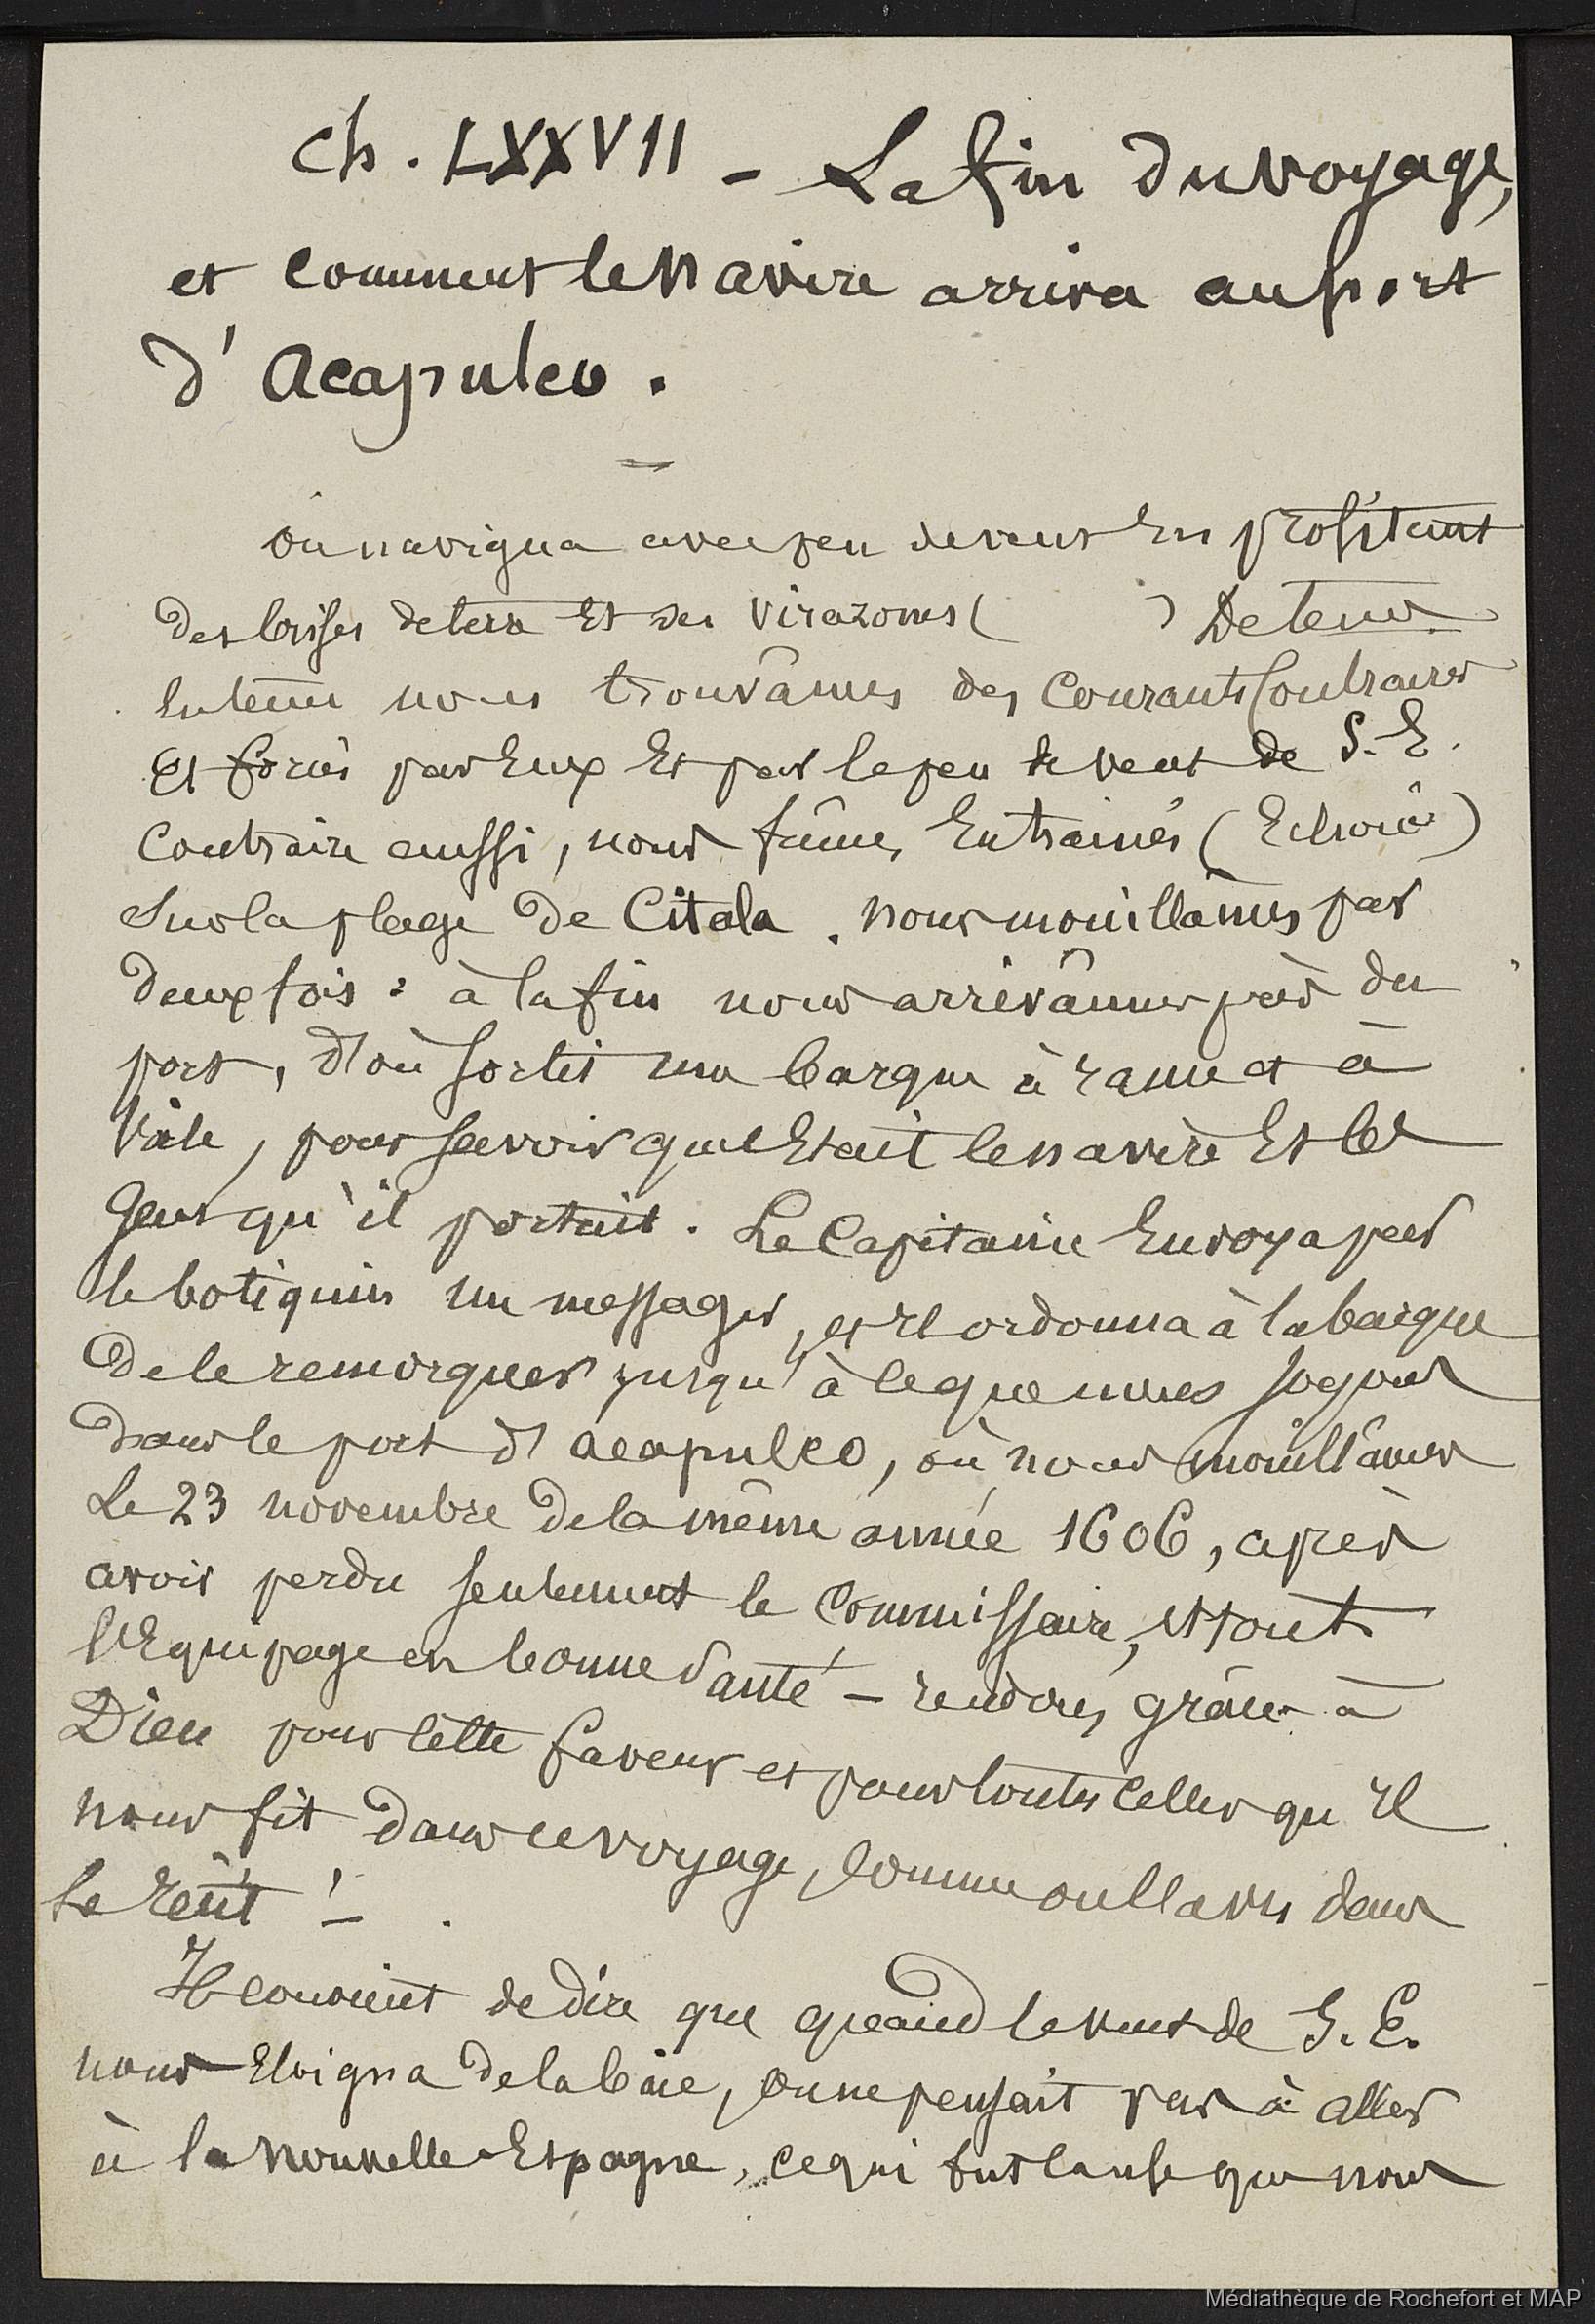 Ch. LXXVII - La fin du voyage,
et comment le navire arriva au port
d'Acapulco.
On navigua avec peu de vent en profitant
des brises de terre et des virazones (          ) De temps
en temps nous trouvâmes des courants contraires
et forcés par eux et par le peu de vent de S.E.
contraire aussi, nous fûmes entrainés (
sur la plage de Citala. Nous mouillâmes par
deux fois : à la fin nous arrivâmes près du
port, d'où sortit une barque à rame et à
voile, pour savoir quel était le navire et les
gens qu'il portait. Le Capitaine envoya par
le botiquin un messager, et il ordonna à la barque
de le remorquer jusqu'à ce que nous soyons
dans le port d'Acapulco, où nous mouillâmes
le 23 novembre de la même année 1606, après
avoir perdu seulement le Commissaire, et tout
l'équipage en bonne santé - rendons grâce à
Dieu pour cette faveur et pour toutes celles qu'Il
nous fit dans ce voyage, comme on l'a vu dans
le récit ! -
Il convient de dire que quand le vent de S.E.
nous éloigna de la baie, on ne pensait pas à aller
à la Nouvelle-Espagne, ce qui fut cause que nous
Médiathèque de Rochefort et MAP